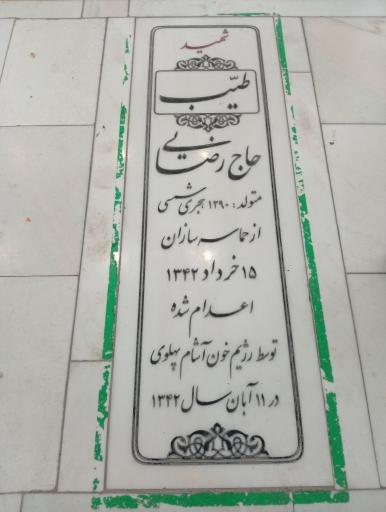 شهید
طیّب
حاج رضایی
متولد: ۱۲۹۰ هجری شمسی
از حماسه سازان
۱۵ خرداد ۱۳۴۲
اعدام شده
توسط رژیم خون آشام پهلوی
در ۱۱ آبان سال ۱۳۴۲